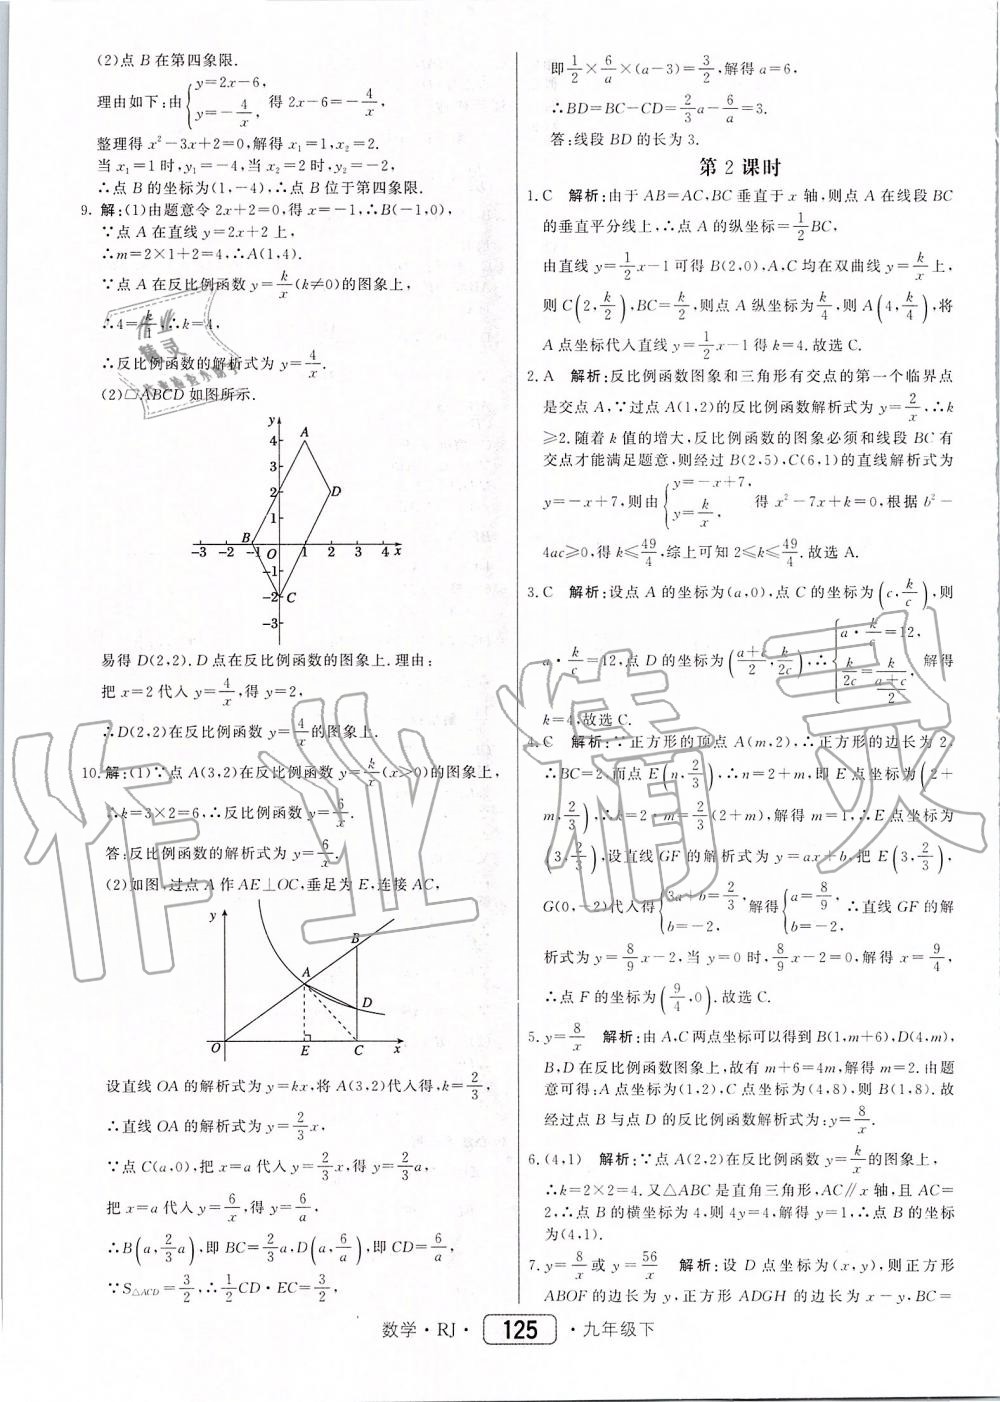 (2)点 B 在第四象限.
理由如下:由{y=2x-6, y=-4/x, 得 2x-6=-4/x,
整理得 x²-3x+2=0,解得 x₁=1,x₂=2.
当 x₁=1 时,y₁=-4,当 x₂=2 时,y₂=-2,
∴点 B 的坐标为(1,-4),∴点 B 位于第四象限.
9. 解:(1)由题意令 2x+2=0,得 x=-1,∴B(-1,0),
∵点 A 在直线 y=2x+2 上,
∴m=2×1+2=4,∴A(1,4).
∵点 A 在反比例函数 y=k/x(k≠0)的图象上,
∴4=k/1,∴k=4,
∴反比例函数的解析式为 y=4/x.
(2)□ABCD 如图所示.
y
4 A
3
2 D
1
B
-3 -2 -1 O 1 2 3 4 x
-1
-2 C
-3
易得 D(2,2). D 点在反比例函数的图象上.理由:
把 x=2 代入 y=4/x,得 y=2,
∴D(2,2)在反比例函数 y=4/x 的图象上.
10. 解:(1)∵点 A(3,2)在反比例函数 y=k/x(x>0)的图象上,
∴k=3×2=6,∴反比例函数 y=6/x.
答:反比例函数的解析式为 y=6/x.
(2)如图,过点 A 作 AE⊥OC,垂足为 E,连接 AC,
y
B
A
D
O E C x
设直线 OA 的解析式为 y=kx,将 A(3,2)代入得,k=2/3,
∴直线 OA 的解析式为 y=2/3x,
∵点 C(a,0),把 x=a 代入 y=2/3x,得 y=2/3a,
把 x=a 代入 y=6/x,得 y=6/a,
∴B(a,2/3a),即 BC=2/3a,D(a,6/a),即 CD=6/a,
∵S△ACD=3/2,∴1/2CD·EC=3/2,
即1/2×6/a×(a-3)=3/2,解得 a=6,
∴BD=BC-CD=2/3a-6/a=3.
答:线段 BD 的长为 3.
第 2 课时
1. C 解析:由于 AB=AC,BC 垂直于 x 轴,则点 A 在线段 BC
的垂直平分线上,∴点 A 的纵坐标=1/2BC,
由直线 y=1/2x-1 可得 B(2,0),A,C 均在双曲线 y=k/x 上,
则 C(2,k/2),BC=k/2,则点 A 纵坐标为k/4,则 A(4,k/4),将
A 点坐标代入直线 y=1/2x-1 得 k=4.故选 C.
2. A 解析:反比例函数图象和三角形有交点的第一个临界点
是交点 A,∵过点 A(1,2)的反比例函数解析式为 y=2/x,∴k
≥2.随着 k 值的增大,反比例函数的图象必须和线段 BC 有
交点才能满足题意,则经过 B(2,5),C(6,1)的直线解析式为
y=-x+7,则由{y=-x+7, y=k/x, 得 x²-7x+k=0,根据 b²-
4ac≥0,得 k≤49/4,综上可知 2≤k≤49/4.故选 A.
3. C 解析:设点 A 的坐标为(a,0),点 C 的坐标为(c,k/c),则
a·k/c=12,点 D 的坐标为((a+c)/2,k/2c),∴{a·k/c=12, k/2c=k/((a+c)/2), 解得
k=4,故选 C.
4. C 解析:∵正方形的顶点 A(m,2),∴正方形的边长为 2,
∴BC=2,而点 E(n,2/3),∴n=2+m,即 E 点坐标为(2+
m,2/3),∴k=2·m=2/3(2+m),解得 m=1,∴E 点坐标为
(3,2/3),设直线 GF 的解析式为 y=ax+b,把 E(3,2/3),
G(0,-2)代入得{3a+b=2/3, b=-2, 解得{a=8/9, b=-2, ∴直线 GF 的解
析式为 y=8/9x-2,当 y=0 时,8/9x-2=0,解得 x=9/4,
∴点 F 的坐标为(9/4,0).故选 C.
5. y=8/x 解析:由 A,C 两点坐标可以得到 B(1,m+6),D(4,m),
B,D 在反比例函数图象上,故有 m+6=4m,解得 m=2.由题
意可得:A 点坐标为(1,2),C 点坐标为(4,8),则 B(1,8).故
经过点 B 与点 D 的反比例函数解析式为:y=8/x.
6. (4,1) 解析:∵点 A(2,2)在反比例函数 y=k/x 的图象上,
∴k=2×2=4.又△ABC 是直角三角形,AC∥x 轴,且 AC=
2,∴点 B 的横坐标为 4,则 4y=4,解得 y=1,∴点 B 的坐标
为(4,1).
7. y=8/x或 y=56/x 解析:设 D 点坐标为(x,y),则正方形
ABOF 的边长为 y,正方形 ADGH 的边长为 x-y,BC=
数学·RJ· 125 ·九年级下
作业精灵